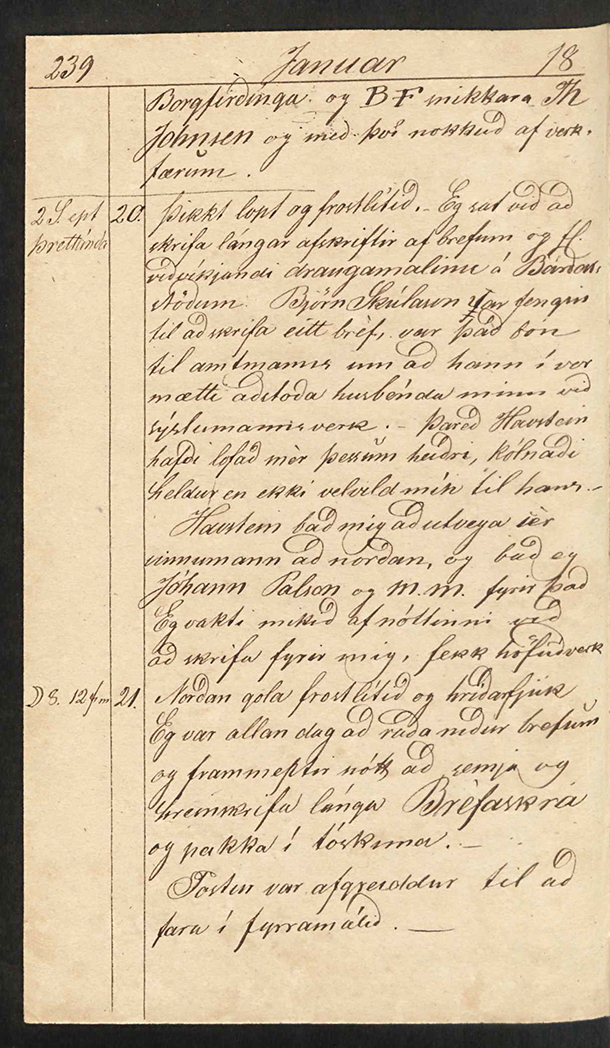 239 Januar 18
Borgfirdinga og B F mikkara Th
Johnsen og med því nokkud af verk-
færum.
2 S. ept 20. Þikkt lopt og frostlítid. – Eg sat vid ad
Þrettánda skrifa lángar afskriftir af brefum og fl.
vidvíkjandi draugamalinu á Bárdar-
stödum. Björn Skúlason var fengin
til ad skrifa eitt bréf, var það bon
til amtmanns um ad hann í vor
mætti adstoda husbónda minn vid
sýslumannsverk. – Þared Havstein
hafdi lofad mér þessum heidri, kólnadi
heldur en ekki velvild mín til hans –
Havstein bad mig ad utvega sér
vinnumann ad nordan, og bad eg
Jóhann Palson og m.m. fyrir þad
Eg vakti mikid af nóttinni vid
ad skrifa fyrir mig, fekk höfudverk
D 8. 12 fm 21. Nordan gola frostlítid og hridarfjúk
Eg var allan dag ad rada nidur brefum
og frammeptir nótt ad semja og
hreinskrifa lánga Bréfaskrá
og pakka í töskuna. –
Postur var afgreiddur til ad
fara í fyrramálid. —